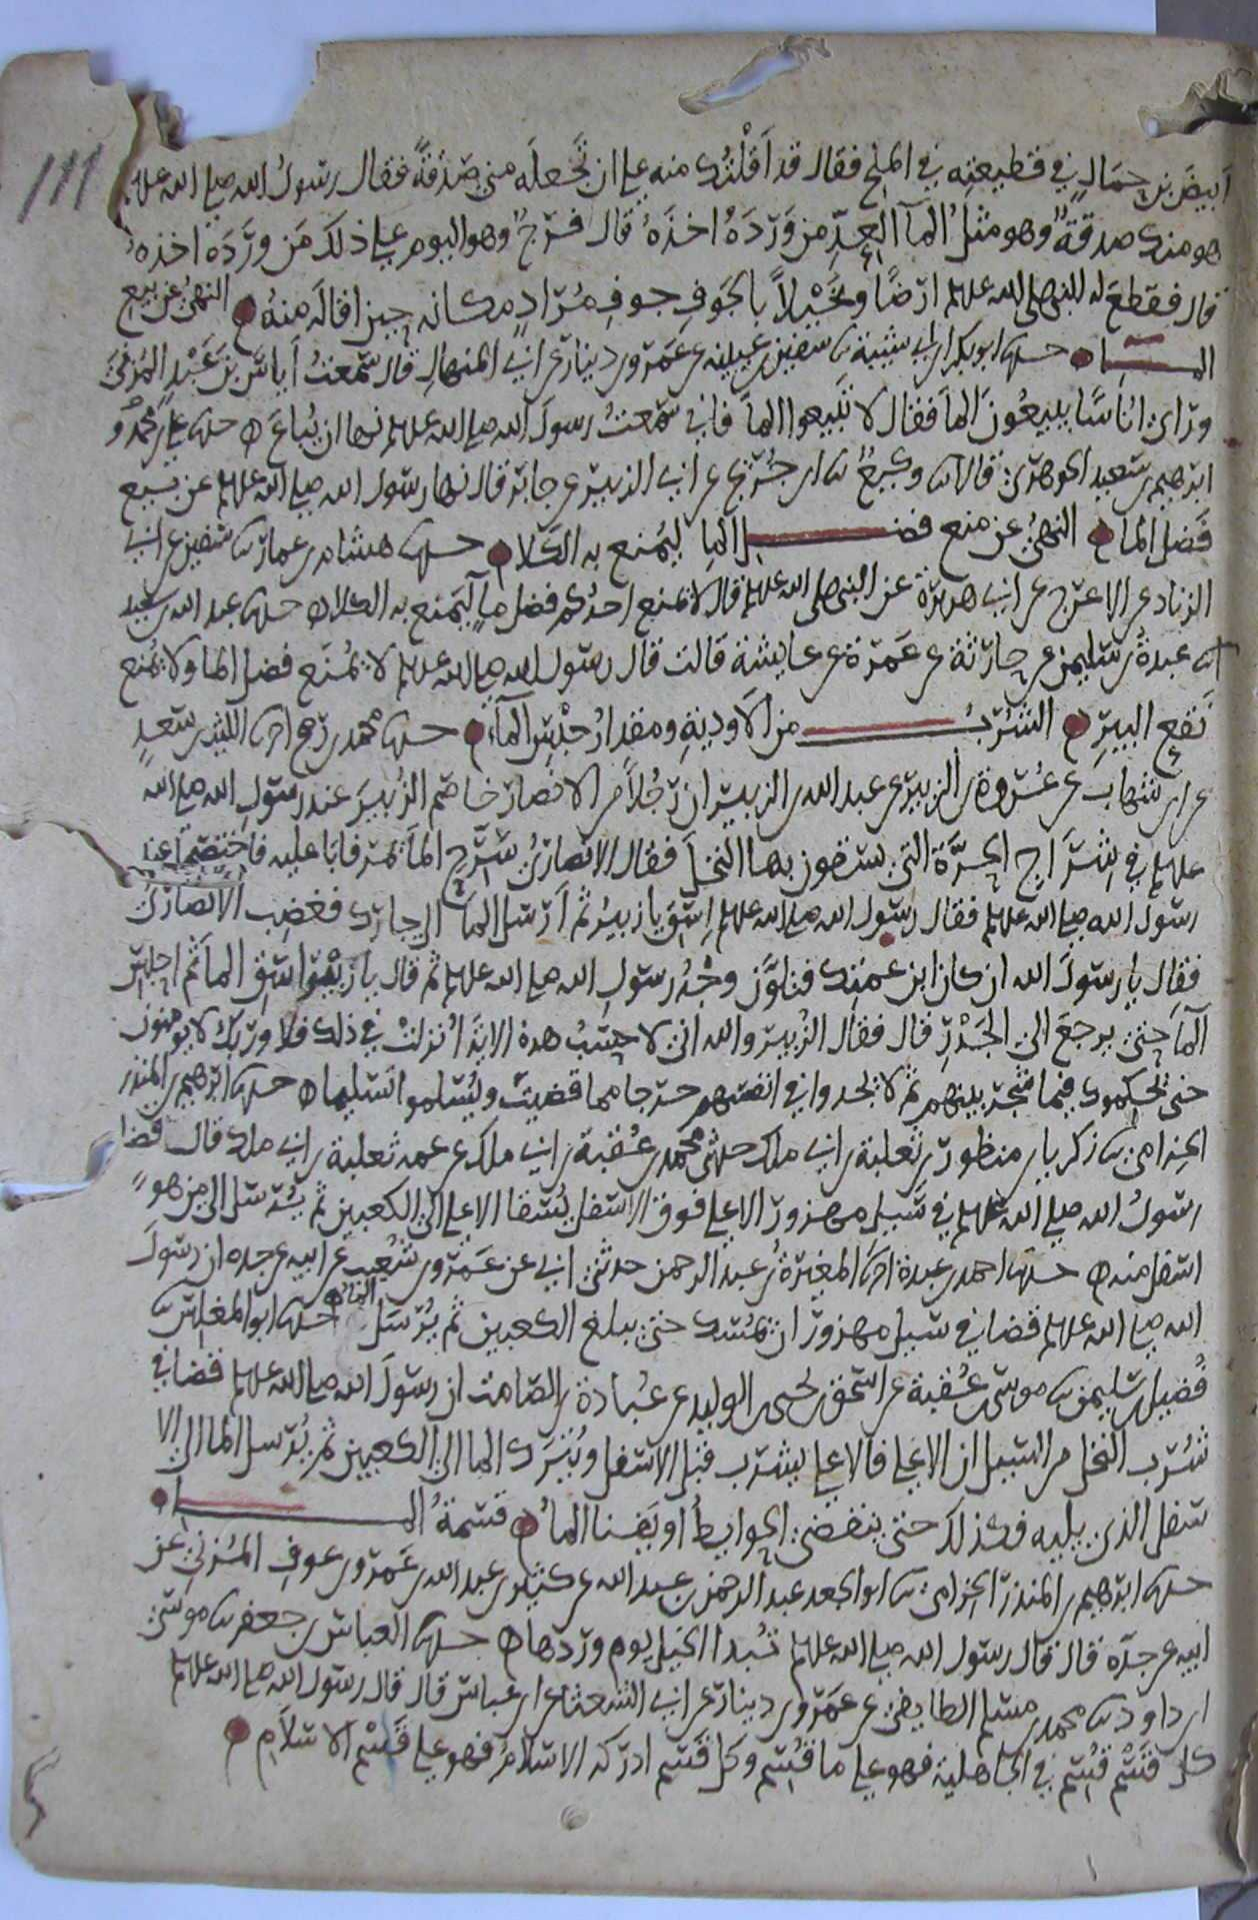 111
ابيضَ بن حِمَالٍ في قطيعته في الملح فقال قد اَقَلْتُك منه على ان تجعلَه مني صَدَقةً فقال رسولُ الله صلى الله عليه
هو منك صدقةٌ وهو مثلُ المآ العِدِّ من وَرَدَهُ اخذَهُ قال فرجٌ وهو اليوم على ذلك مَن ورَدَه اخذهُ
قال فقطعَ له النبي صلى الله عليه ارضًا ونخْيلاً بالجَوفِ جوفِ مُرَادٍ مكانه حِينَ اقاله منهُ النهيُ عن بيع
المـــــا حدثنا ابو بكر ابن ابي شيبة ثنا سفين بن عيينه عن عَمرو بن دينار عن ابي المنهالِ قال سَمعتُ اَياسَ بنَ عَبْدٍ المُزَنيَّ
وراى اناسًا يبيعُونَ الماَ فقال لا تبيعوا الماَ فاني سَمعتُ رسولَ الله صلى الله عليه نها ان يُباعَ حدثنا علي بن محمد و
ابرهيم بن سَعيد الجوهَري قالا ثنا وكيعٌ ثنا ابن جُرَيج عن ابي الزبير عن جابر قال نها رسول الله صلى الله عليه عن بيع
فَضل الماء النهيُ عن منع فضـــــل الماِ ليُمنع به الكلا حدثنا هشام بن عمار ثنا سفين عن ابي
الزناد عن الاعرَج عن ابي هريرَة عن النبي صلى الله عليه قال لا يمنع احدُكم فضل ماٍ ليَمنع به الكلا حدثنا عبد الله بن سعيد
ثنا عبدةُ بن سليمن عن حارثة عن عَمرَة عن عايشة قالت قال رسول الله صلى الله عليه لا يُمنَع فضل الما ولا يُمنع
نَقع البيرِ الشُّرْبُـــــ من الاوديةِ ومقدارُ حَبْسِ المآءِ حدثنا محمد بن رمح اخبرنا الليث بن سَعدٍ
عن ابن شهابٍ عن عُروةَ بن الزبير عن عبد الله بن الزبير ان رَجُلاً من الانصار خاصَم الزُبيرَ عند رسولِ الله صلى الله
عليه في شِرَاجِ الحَرَّةَ التي يسقون بها النخلَ فقال الانصاريُّ سَرِّحِ الماَ يمر فابا عليه فاختصما عند
رسول الله صلى الله عليه فقال رسول الله صلى الله عليه اِسقِ يا زبيرُ ثم اَرسل الماَ الى جارك فغضِب الانصاريُّ
فقال يا رسولَ الله ان كان ابن عمتك فتلوَّن وَجْهُ رسولِ الله صلى الله عليه ثم قال يا زبيْرُ اسقِ الماَ ثم احبِسِ
الماَ حتى يرجعَ الى الجَدْرِ قال فقال الزُبير والله اني لاحسِبُ هذه الايةَ اُنزلتْ في ذلك فلا وربك لا يومنون
حتى يحكموك فيما شجَر بينهم ثم لا يجدوا في انفسهم حرجا مما قضيت ويُسلموا تسليما حدثنا ابرهيم بن المنذر
الحِزامي ثنا زكريا بن منظور بن ثعلبة بن ابي ملك حدثني محمد بن عُقبة بن ابي ملك عن عمه ثعلبة بن ابي ملك قال قضا
رسولُ الله صلى الله عليه في سَيل مهزور الاعلى فوق الاسفل يُسقا الاعلى الى الكعبين ثم يُرسل الى من هو
اسفل منه حدثنا احمد بن عبدة اخبرنا المغيرةُ بن عبد الرحمن حدثني ابي عن عَمرو بن شعيب عن ابيه عن جده ان رسولَ
الله صلى الله عليه قضا في سيل مهزور ان يُمسَك حتى يبلغ الكعبين ثم يُرسَل الماءُ حدثنا ابو المغلس ثنا
فُضيل بن سليمن ثنا موسى بن عُقبة عن اسحق بن يحيى بن الوليد عن عُبادة بن الصّامت ان رسولَ الله صلى الله عليه قضا في
شُرب النخل من السيل ان الاعلى فالاعلى يشرَب قبل الاسفل ويُترَك الما الى الكعبين ثم يُرسل الما الى الا
سفل الذي يليه فكذلك حتى ينقضي الحوايطُ او يَفنا الماءُ قسمةُ المـــــا
حدثنا ابرهيم بن المنذر الحزامي ثنا ابو الجعد عبد الرحمن بن عبد الله عن كثير بن عبد الله بن عَمرو بن عوفٍ المُزني عن
ابيه عن جدّه قال قال رسول الله صلى الله عليه تُبدا الخيل يوم وردها حدثنا العباس بن جعفر ثنا موسى
ابن داود ثنا محمد بن مسلم الطايفي عن عَمرو بن دينار عن ابي الشعثا عن ابن عباس قال قال رسول الله صلى الله عليه
كل قَسْم قُسِم في الجاهلية فهو على ما قُسِم وكل قَسم ادركه الاسلامُ فهو على قَسْم الاسلامِ